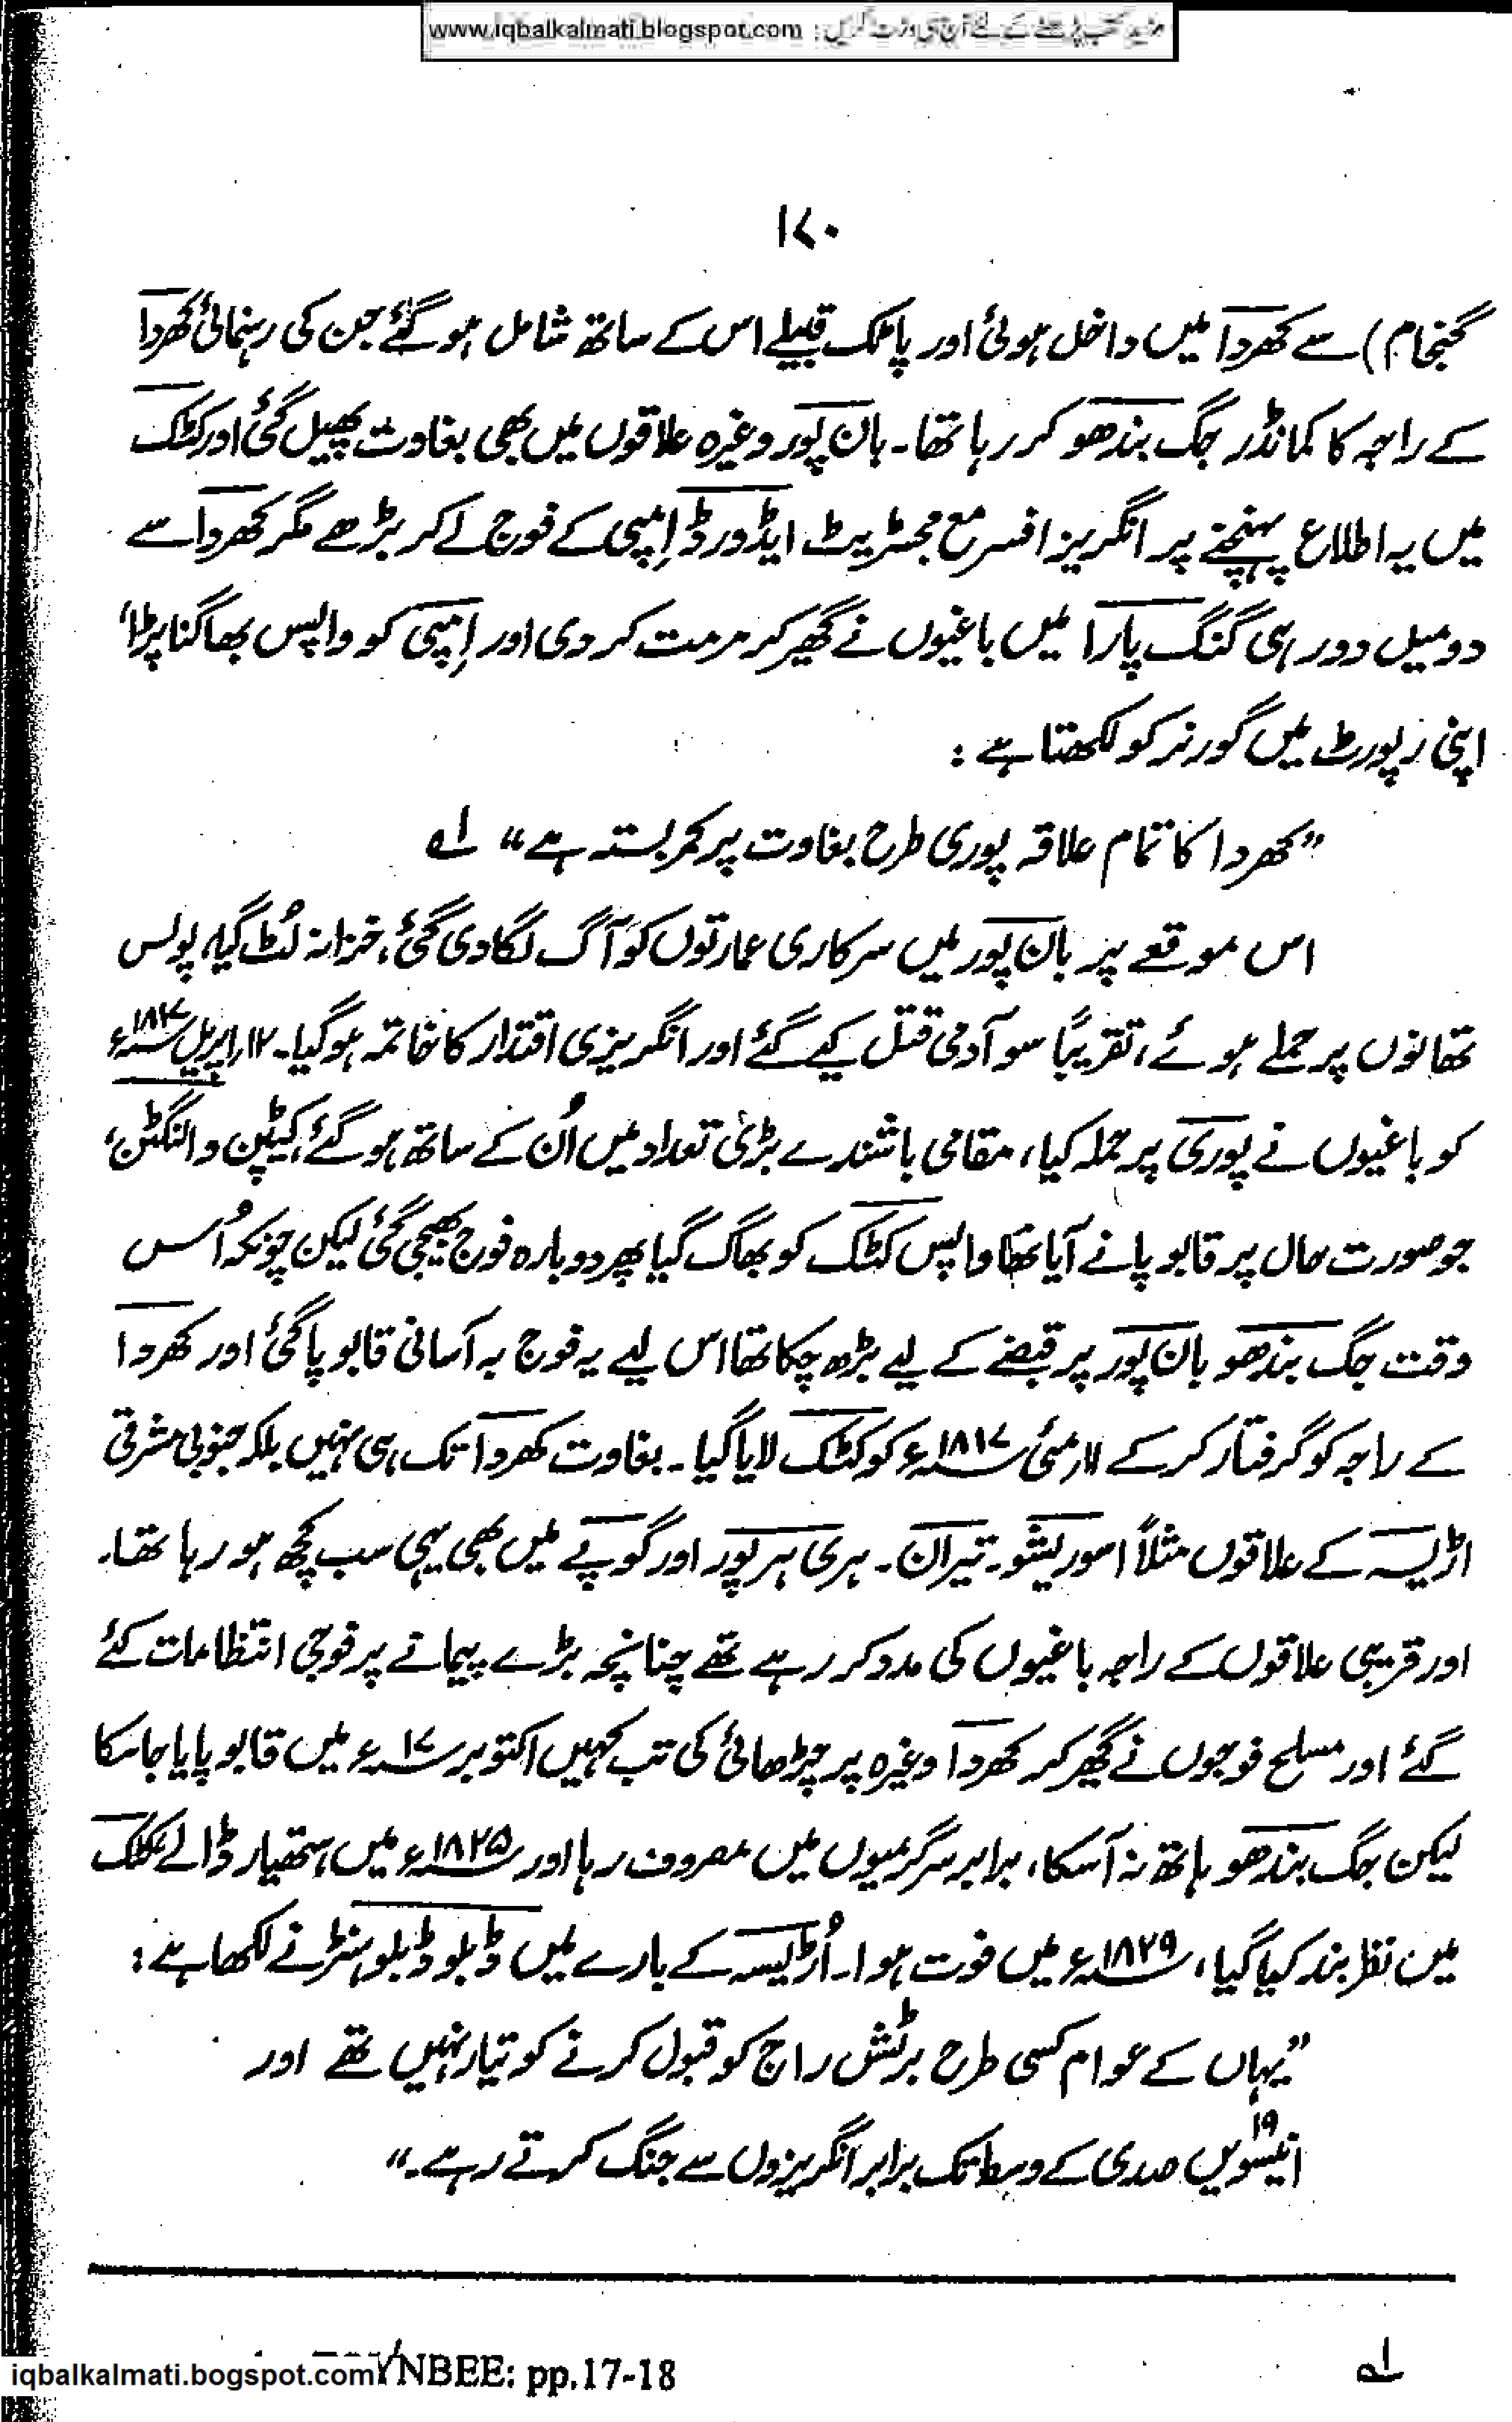 www.iqbalkalmati.blogspot.com : مزید کتب پڑھنے کے لئے آج ہی وزٹ کریں
۱۷۰
گنجام) سے کھردا میں داخل ہوئی اور پائک قبیلے اس کے ساتھ شامل ہو گئے جن کی رہنمائی کھردا
کے راجہ کا کمانڈر جگ بندھو کر رہا تھا۔ بان پور وغیرہ علاقوں میں بھی بغاوت پھیل گئی اور کٹک
میں یہ اطلاع پہنچنے پر انگریز افسر مع مجسٹریٹ ایڈورڈ اِمپی کے فوج لے کر بڑھے مگر کھردا سے
دو میل دور ہی گنگ پارا میں باغیوں نے گھیر کر مرمت کر دی اور اِمپی کو واپس بھاگنا پڑا،
اپنی رپورٹ میں گورنر کو لکھتا ہے :
”کھردا کا تمام علاقہ پوری طرح بغاوت پر کمربستہ ہے“ ۱ھ
اس موقعے پر بان پور میں سرکاری عمارتوں کو آگ لگا دی گئی، خزانہ لُٹ گیا، پولس
تھانوں پر حملے ہوئے، تقریباً سو آدمی قتل کیے گئے اور انگریزی اقتدار کا خاتمہ ہو گیا۔ ۱۲؍اپریل ۱۸۱۷ء
کو باغیوں نے پوری پر حملہ کیا، مقامی باشندے بڑی تعداد میں اُن کے ساتھ ہو گئے، کیپٹن والنگٹن،
جو صورت حال پر قابو پانے آیا تھا واپس کٹک کو بھاگ گیا پھر دوبارہ فوج بھیجی گئی لیکن چونکہ اُس
وقت جگ بندھو بان پور پر قبضے کے لیے بڑھ چکا تھا اس لیے یہ فوج بہ آسانی قابو پا گئی اور کھردا
کے راجہ کو گرفتار کر کے ۱۱؍مئی ۱۸۱۷ء کو کٹک لایا گیا۔ بغاوت کھردا تک ہی نہیں بلکہ جنوبی مشرقی
اڑیسہ کے علاقوں مثلاً اسوریشو۔ تیران۔ ہری ہر پور اور گوپے میں بھی یہی سب کچھ ہو رہا تھا۔
اور قریبی علاقوں کے راجہ باغیوں کی مدد کر رہے تھے چنانچہ بڑے پیمانے پر فوجی انتظامات کئے
گئے اور مسلح فوجوں نے گھیر کر کھردا وغیرہ پر چڑھائی کی تب کہیں اکتوبر ۱۷ء میں قابو پایا جا سکا
لیکن جگ بندھو ہاتھ نہ آ سکا، برابر سرگرمیوں میں مصروف رہا اور ۱۸۲۵ء میں ہتھیار ڈالے، کٹک
میں نظر بند کیا گیا، ۱۸۲۹ء میں فوت ہوا۔ اُڑیسہ کے بارے میں ڈبلو ڈبلو ہنٹر نے لکھا ہے :
”یہاں کے عوام کسی طرح برٹش راج کو قبول کرنے کو تیار نہیں تھے اور
۱۹
انیسویں صدی کے وسط تک برابر انگریزوں سے جنگ کرتے رہے۔“
۱ھ
YNBEE: pp.17-18
iqbalkalmati.bogspot.com